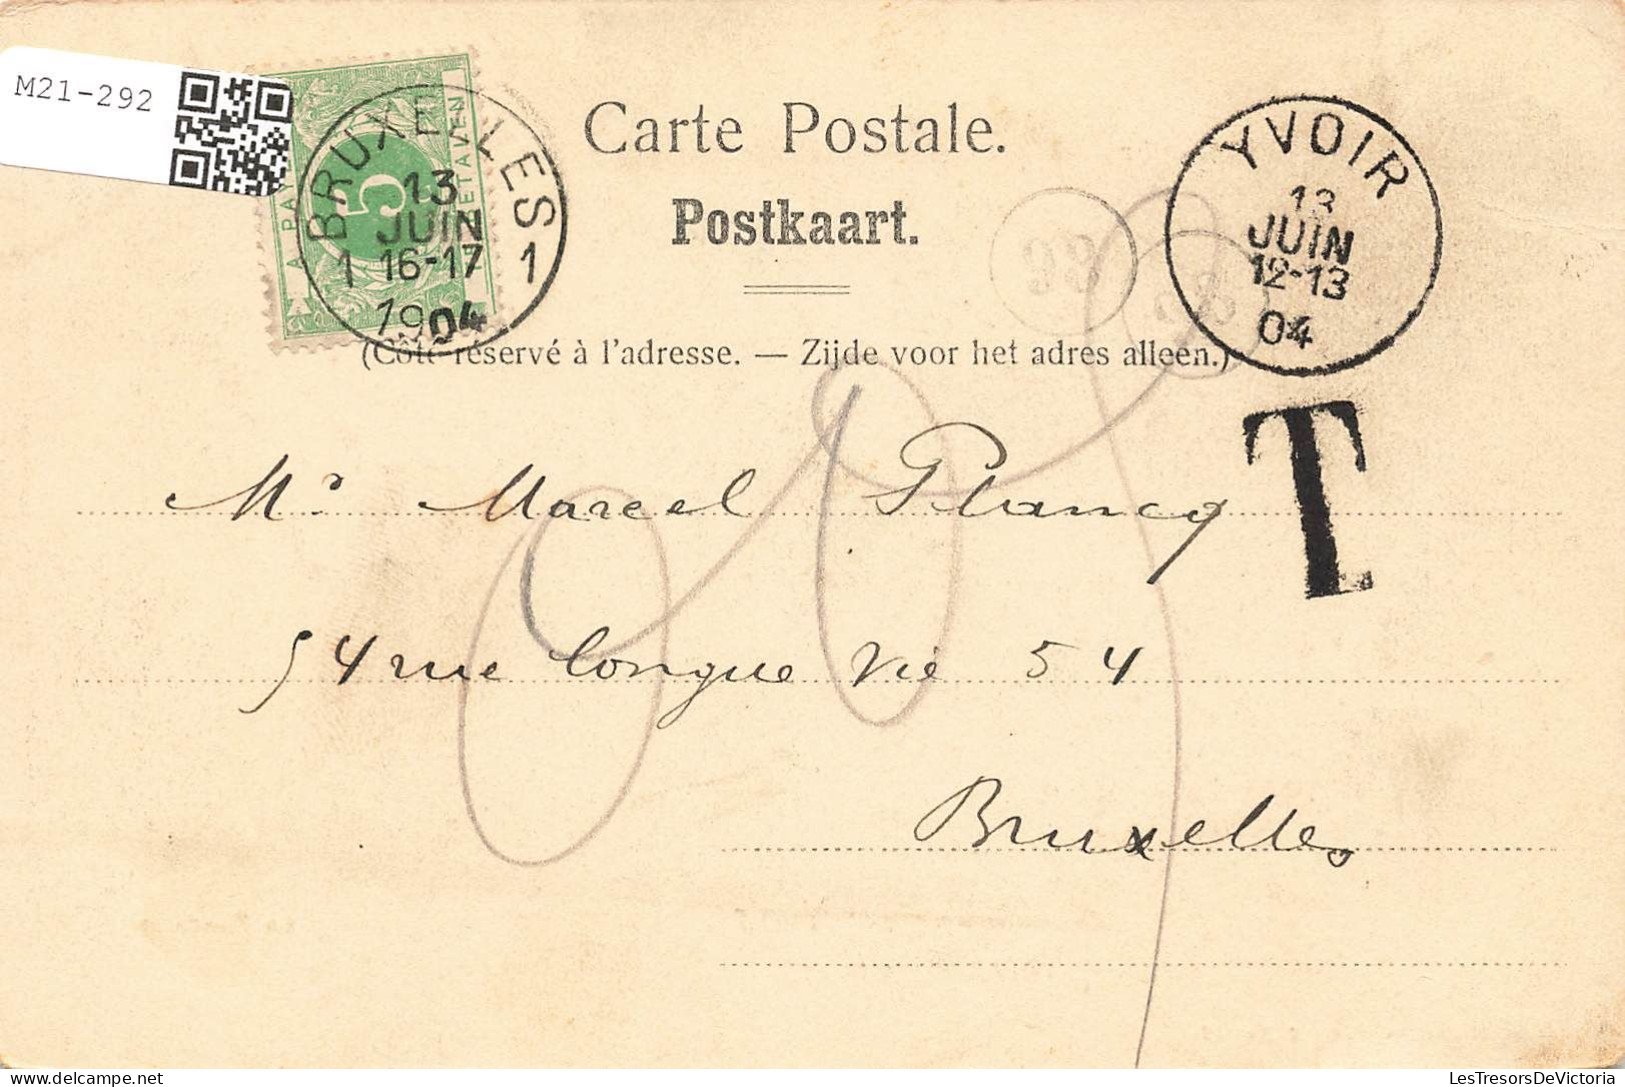 M21-292
A PAYER
TE BETALEN
5
BRUXELLES
13
JUIN
1 16-17 1
1904
Carte Postale.
Postkaart.
(Côté réservé à l'adresse. — Zijde voor het adres alleen.)
YVOIR
13
JUIN
12-13
04
T
Mr Marcel Plancq
54 rue longue vie 54
Bruxelles
LesTresorsDeVictoria